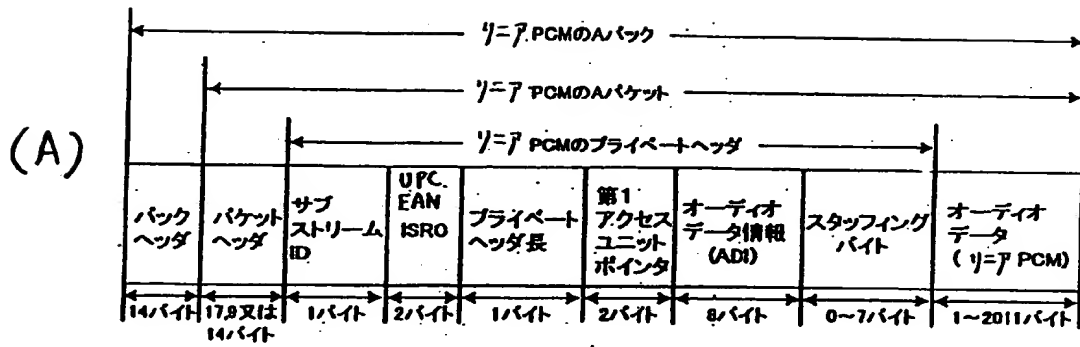 リニア PCMのAパック
リニア PCMのAパケット
リニア PCMのプライベートヘッダ
(A)
パック
ヘッダ
パケット
ヘッダ
サブ
ストリーム
ID
UPC.
EAN
ISRO
プライベート
ヘッダ長
第1
アクセス
ユニット
ポインタ
オーディオ
データ情報
(ADI)
スタッフィング
バイト
オーディオ
データ
(リニア PCM)
14バイト
17,9又は
14バイト
1バイト
2バイト
1バイト
2バイト
8バイト
0~7バイト
1~2011バイト